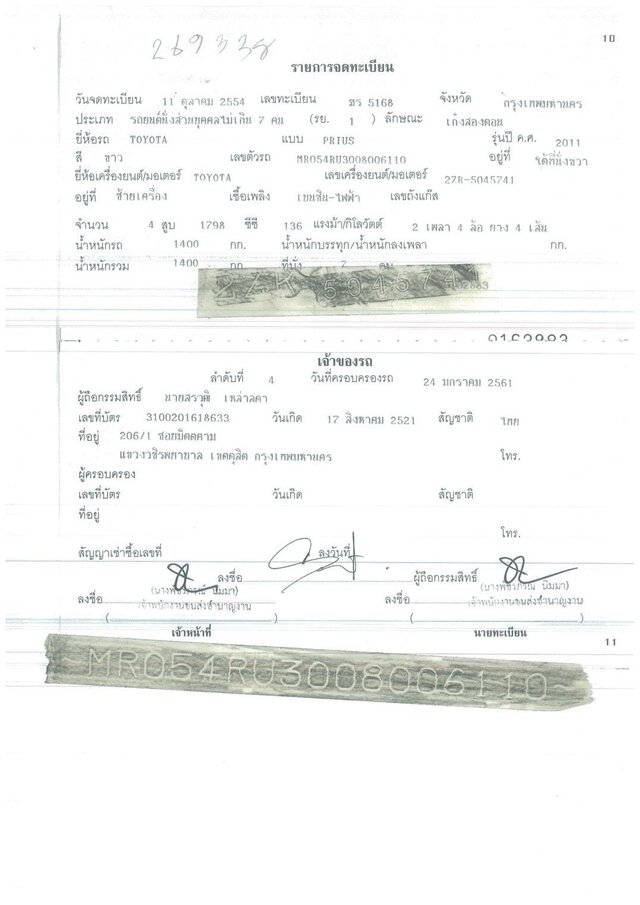 269338
10
รายการจดทะเบียน
วันจดทะเบียน 11 ตุลาคม 2554 เลขทะเบียน ฆร 5168 จังหวัด กรุงเทพมหานคร
ประเภท รถยนต์นั่งส่วนบุคคลไม่เกิน 7 คน (รย. 1 ) ลักษณะ เก๋งสองตอน
ยี่ห้อรถ TOYOTA แบบ PRIUS รุ่นปี ค.ศ. 2011
สี ขาว เลขตัวรถ MR054RU3008006110 อยู่ที่ ใต้ที่นั่งขวา
ยี่ห้อเครื่องยนต์/มอเตอร์ TOYOTA เลขเครื่องยนต์/มอเตอร์ 2ZR-5045741
อยู่ที่ ซ้ายเครื่อง เชื้อเพลิง เบนซิน-ไฟฟ้า เลขถังแก๊ส
จำนวน 4 สูบ 1798 ซีซี 136 แรงม้า/กิโลวัตต์ 2 เพลา 4 ล้อ ยาง 4 เส้น
น้ำหนักรถ 1400 กก. น้ำหนักบรรทุก/น้ำหนักลงเพลา กก.
น้ำหนักรวม 1400 กก. ที่นั่ง 7 คน
2ZR 504574
0162883
เจ้าของรถ
ลำดับที่ 4 วันที่ครอบครองรถ 24 มกราคม 2561
ผู้ถือกรรมสิทธิ์ นายสรวุฒิ เหล่าลดา
เลขที่บัตร 3100201618633 วันเกิด 17 สิงหาคม 2521 สัญชาติ ไทย
ที่อยู่ 206/1 ซอยมิตตคาม
แขวงวชิรพยาบาล เขตดุสิต กรุงเทพมหานคร โทร.
ผู้ครอบครอง
เลขที่บัตร วันเกิด สัญชาติ
ที่อยู่
โทร.
สัญญาเช่าซื้อเลขที่ ลงวันที่
ลงชื่อ ผู้ถือกรรมสิทธิ์
ลงชื่อ เจ้าพนักงานขนส่งชำนาญงาน ลงชื่อ เจ้าพนักงานขนส่งชำนาญงาน
เจ้าหน้าที่ นายทะเบียน
11
MR054RU3008006110